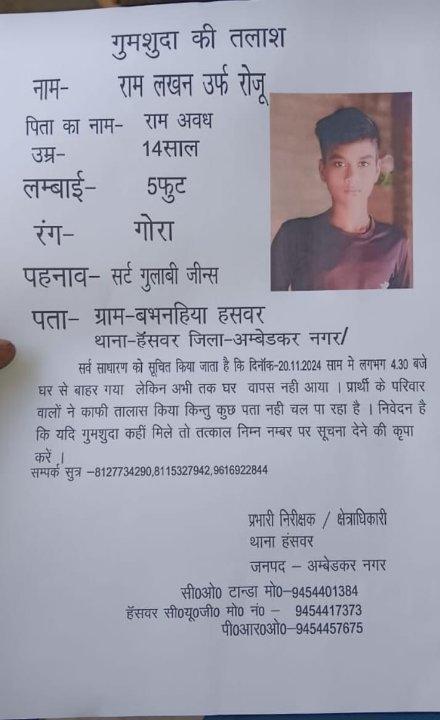 गुमशुदा की तलाश
नाम- राम लखन उर्फ रोजू
पिता का नाम- राम अवध
उम्र- 14साल
लम्बाई- 5फुट
रंग- गोरा
पहनाव- सर्ट गुलाबी जीन्स
पता- ग्राम-बभनहिया हसवर
थाना-हॅसवर जिला-अम्बेडकर नगर/
सर्व साधारण को सूचित किया जाता है कि दिनॉक-20.11.2024 साम मे लगभग 4.30 बजे
घर से बाहर गया लेकिन अभी तक घर वापस नही आया । प्रार्थी के परिवार
वालों ने काफी तालास किया किन्तु कुछ पता नही चल पा रहा है । निवेदन है
कि यदि गुमशुदा कहीं मिले तो तत्काल निम्न नम्बर पर सूचना देने की कृपा
करें ।
सम्पर्क सुत्र –8127734290,8115327942,9616922844
प्रभारी निरीक्षक / क्षेत्राधिकारी
थाना हंसवर
जनपद – अम्बेडकर नगर
सी0ओ0 टान्डा मो0–9454401384
हॅसवर सी0यू0जी0 मो0 नं0 – 9454417373
पी0आर0ओ0–9454457675